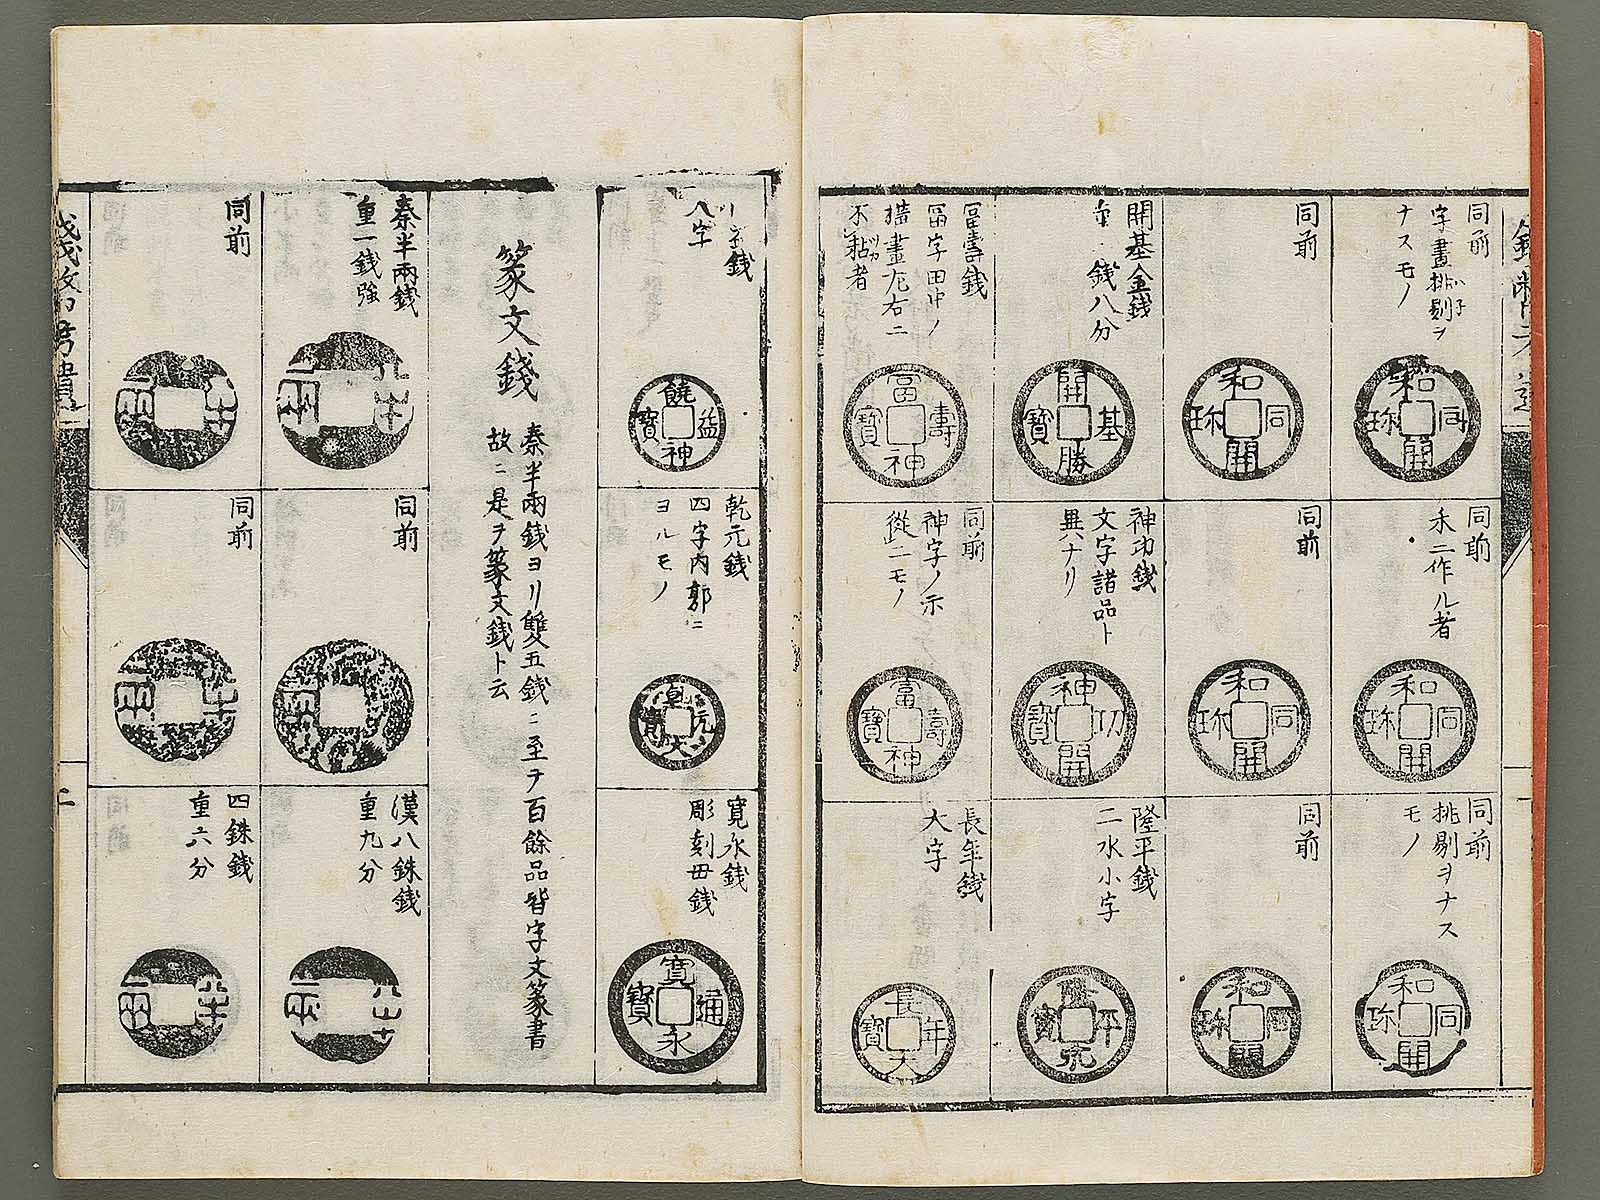 同前
字畫挑剔ヲ
ナスモノ
和同開珎
同前
禾二作ル者
和同開珎
同前
挑剔ヲナス
モノ
和同開珎
同前
和同開珎
同前
和同開珎
同前
和同開珎
開基金銭
銭八分
開基勝寳
神功銭
文字諸品ト
異ナリ
神功開寳
隆平銭
二水小字
平永寳
冨壽銭
冨字田中ノ
畫左右ニ
不黏者
富壽神寳
同前
神字ノ示
從二モノ
富壽神寳
長年銭
大字
長年大寳
銭
八字
饒益神寳
乾元銭
四字内郭ニ
ヨルモノ
乾元大寳
寛永銭
彫刻毋銭
寛永通寳
篆文錢
秦半兩銭ヨリ雙五銭ニ至テ百餘品皆字文篆書
故ニ是ヲ篆文銭ト云
秦半兩銭
重一銭強
半兩
同前
半兩
漢八銖銭
重九分
半兩
同前
半兩
同前
半兩
四銖銭
重六分
半兩
二